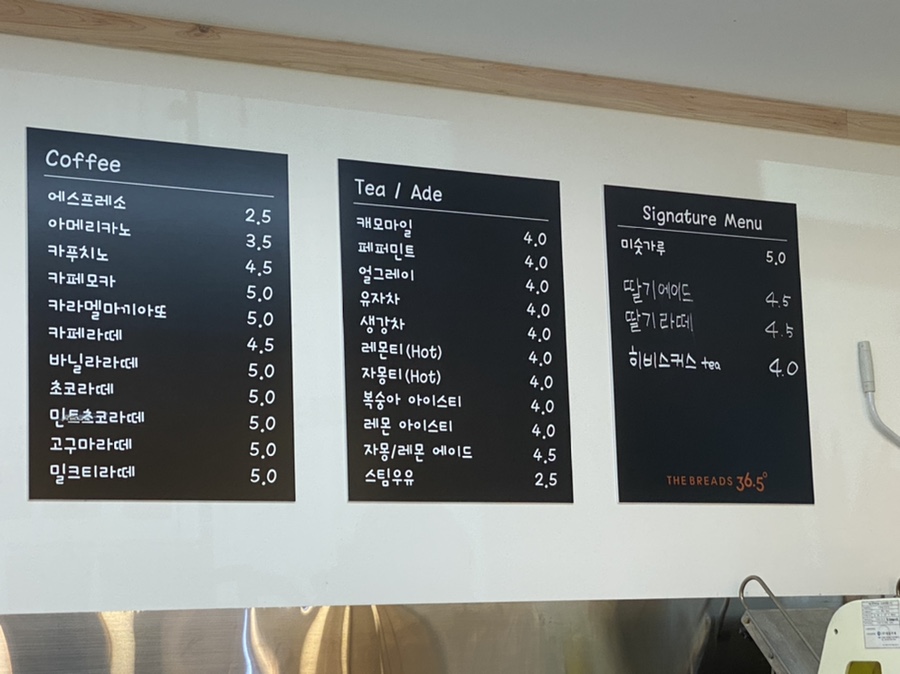 Coffee
에스프레소 2.5
아메리카노 3.5
카푸치노 4.5
카페모카 5.0
카라멜마끼아또 5.0
카페라떼 4.5
바닐라라떼 5.0
초코라떼 5.0
민트초코라떼 5.0
고구마라떼 5.0
밀크티라떼 5.0
Tea / Ade
캐모마일 4.0
페퍼민트 4.0
얼그레이 4.0
유자차 4.0
생강차 4.0
레몬티(Hot) 4.0
자몽티(Hot) 4.0
복숭아 아이스티 4.0
레몬 아이스티 4.0
자몽/레몬 에이드 4.5
스팀우유 2.5
Signature Menu
미숫가루 5.0
딸기에이드 4.5
딸기라떼 4.5
히비스커스 tea 4.0
THE BREADS 36.5°